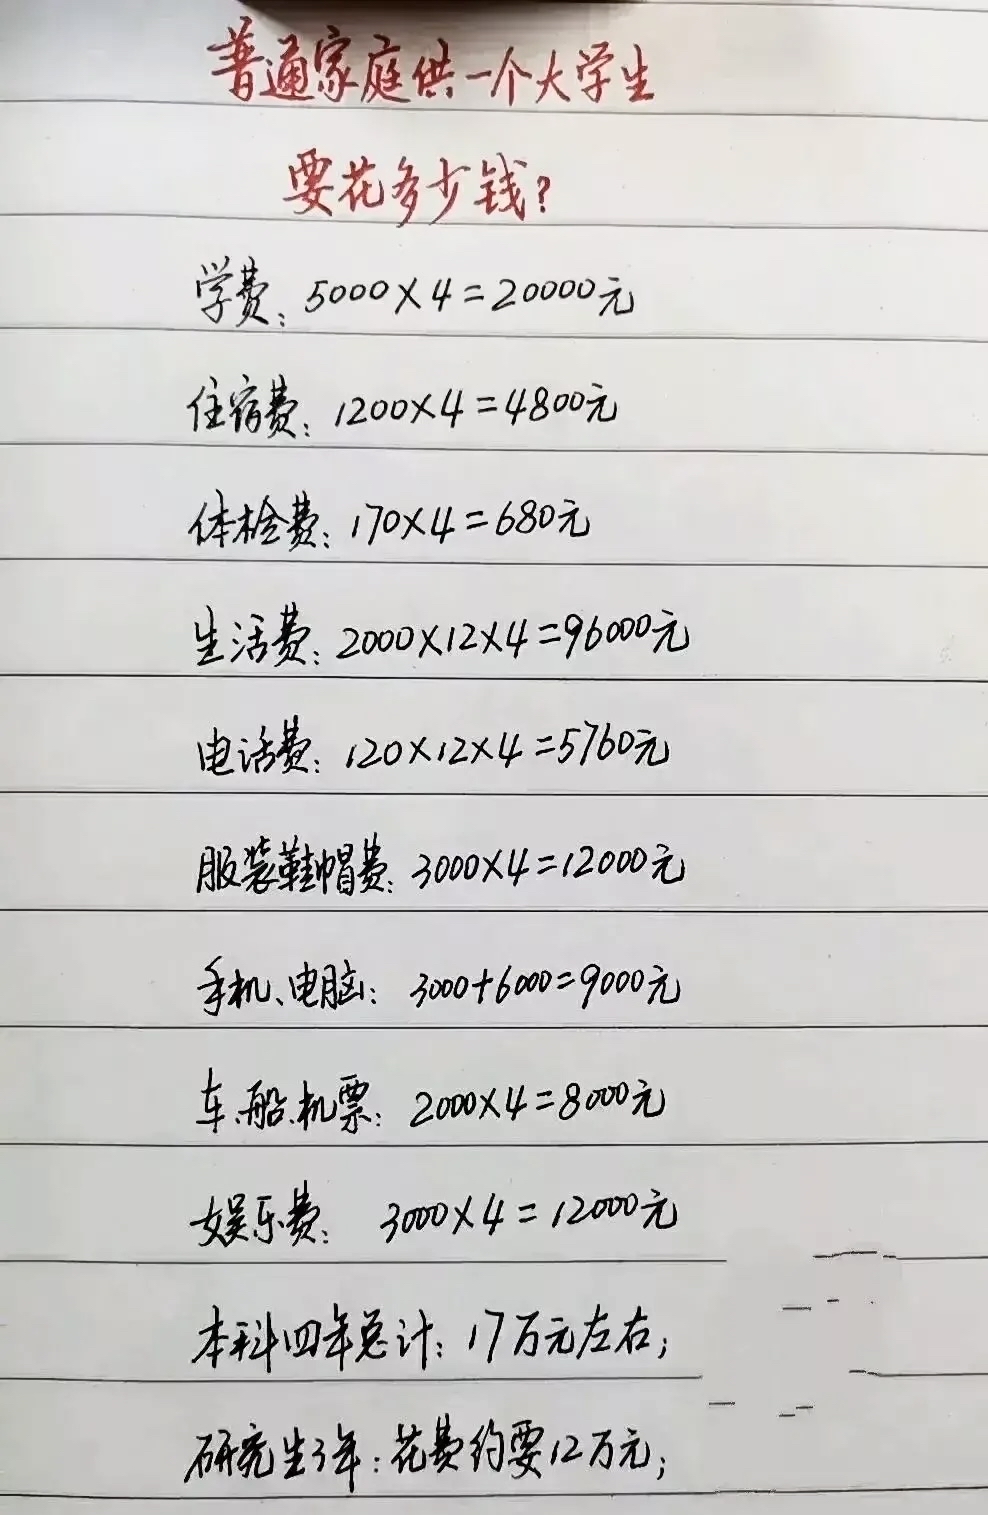 普通家庭供一个大学生
要花多少钱?
学费: 5000×4=20000元
住宿费: 1200×4=4800元
体检费: 170×4=680元
生活费: 2000×12×4=96000元
电话费: 120×12×4=5760元
服装鞋帽费: 3000×4=12000元
手机、电脑: 3000+6000=9000元
车、船、机票: 2000×4=8000元
娱乐费: 3000×4=12000元
本科四年总计: 17万元左右;
研究生3年: 花费约要12万元;